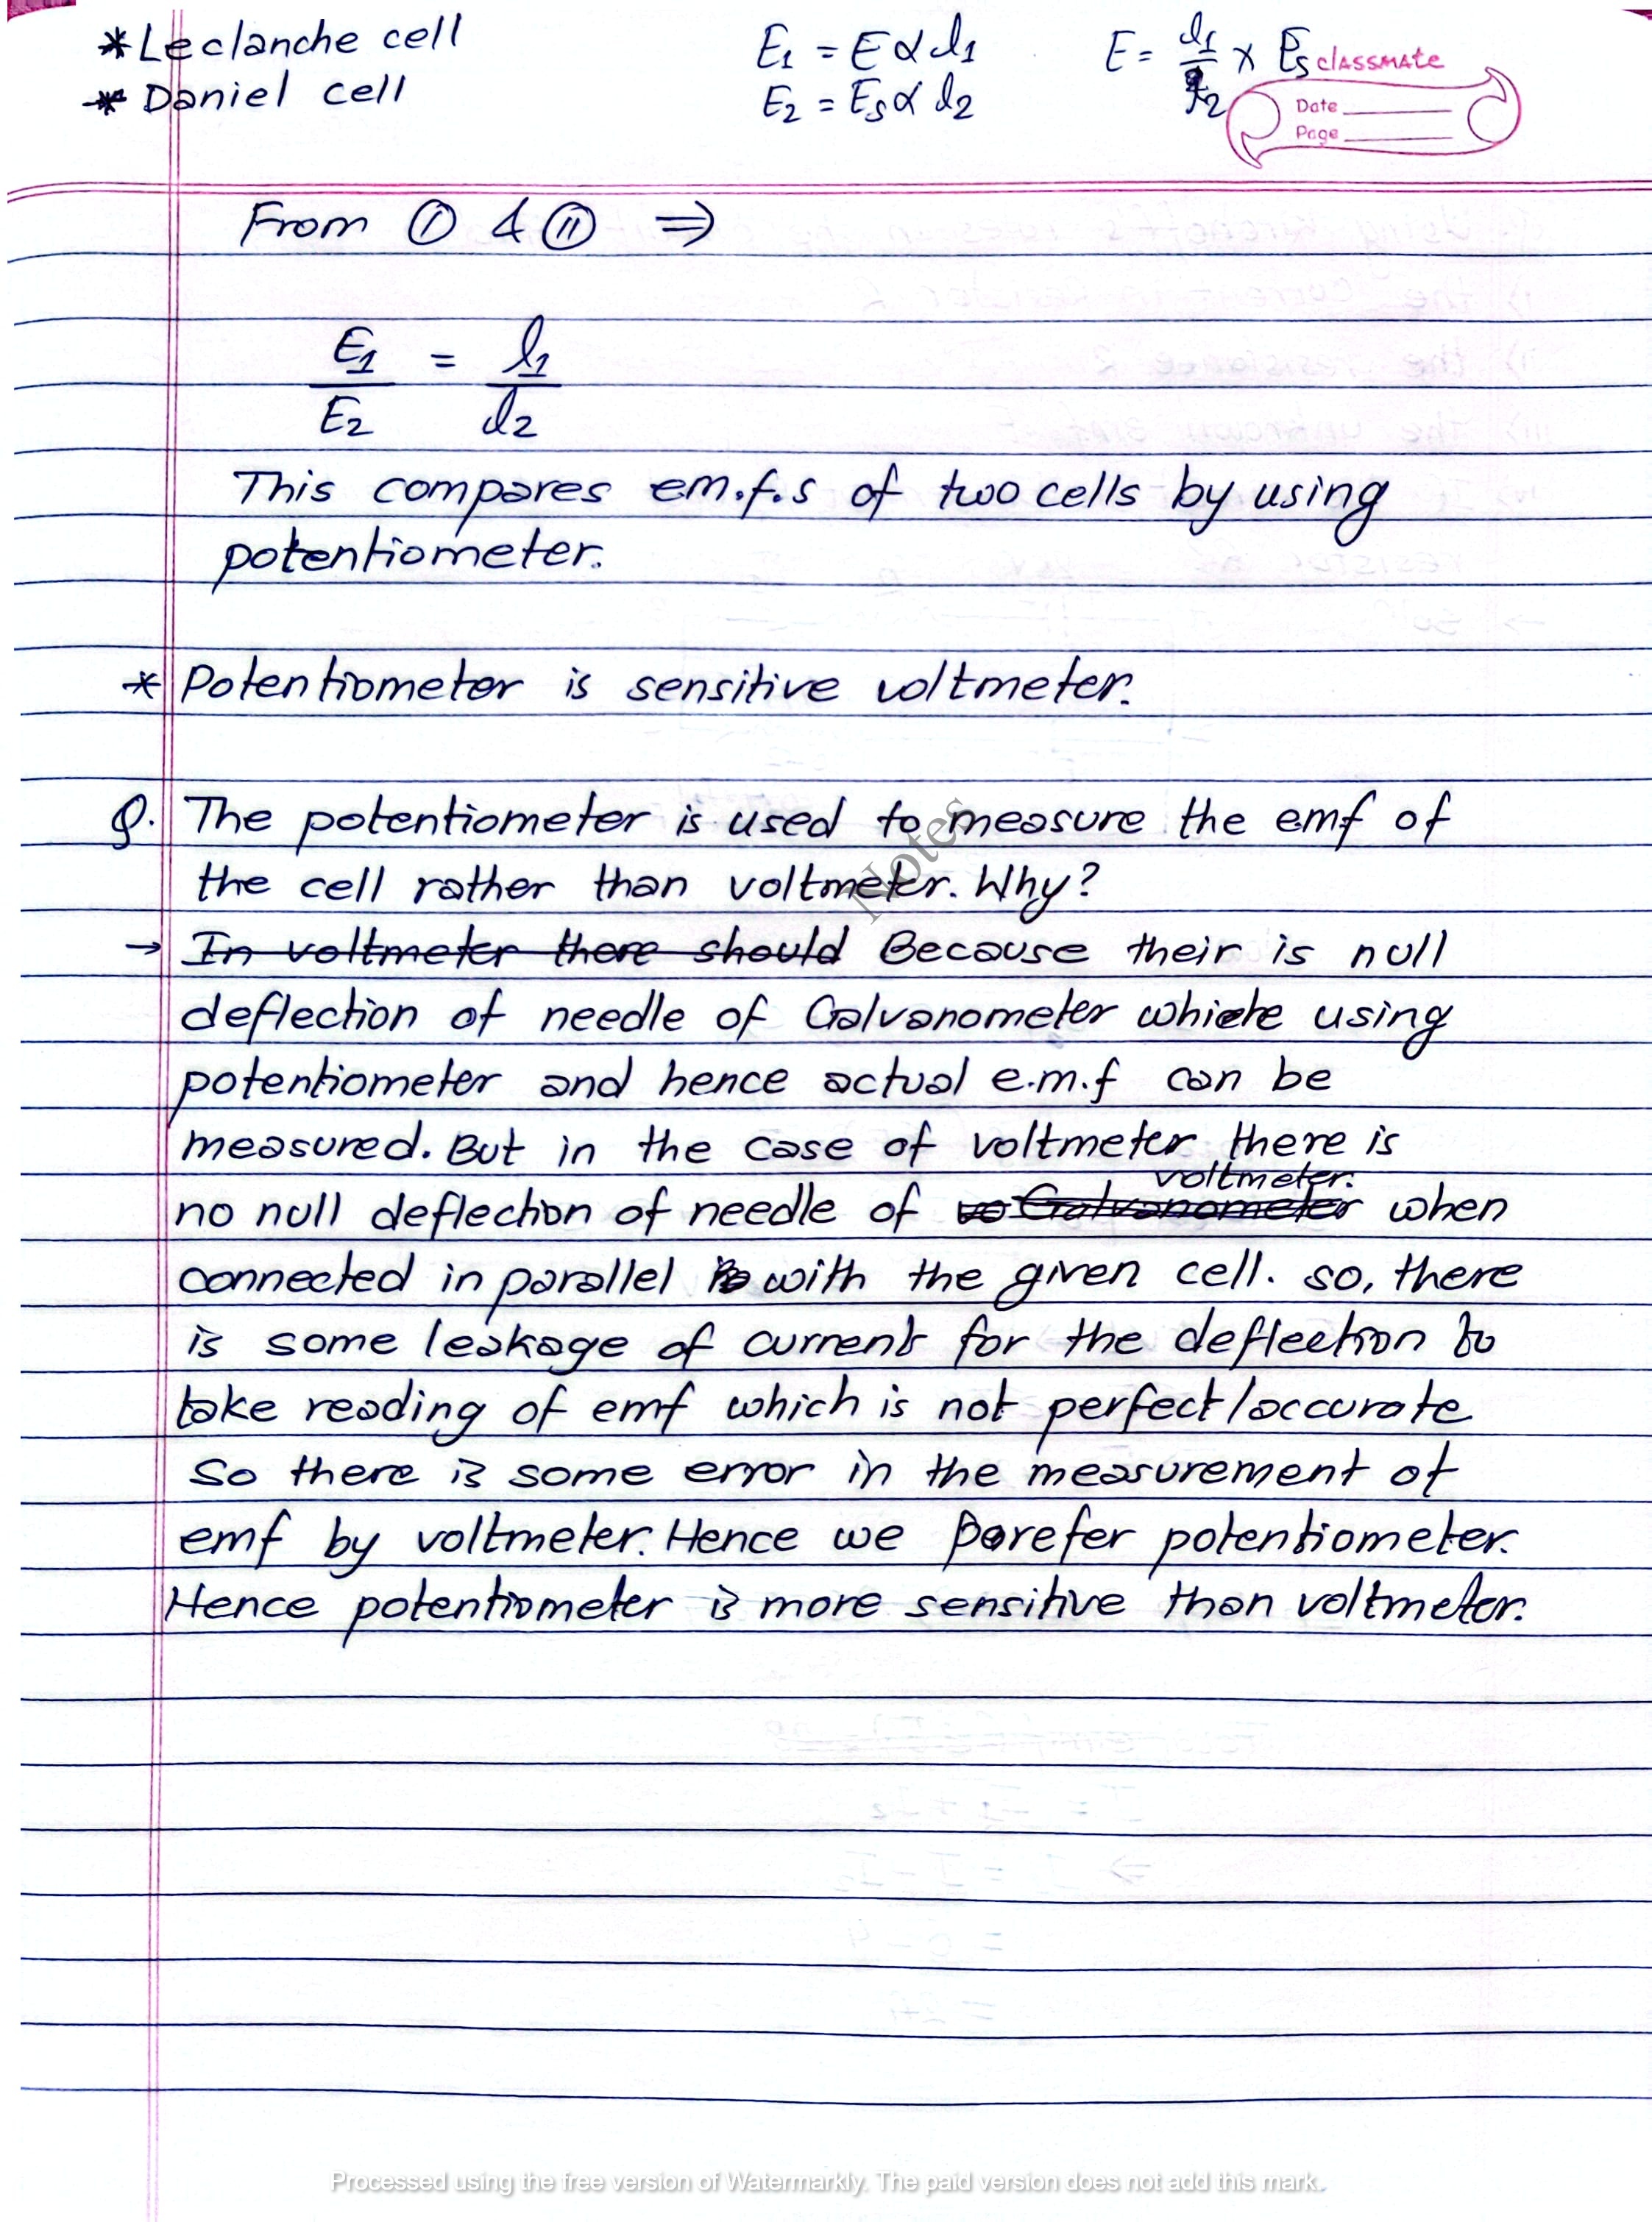 *Leclanche cell
* Daniel cell
E1 = E α l1
E2 = Es α l2
E = l1/l2 x Es
classmate
Date
Page
From (I) & (II) ⇒
E1/E2 = l1/l2
This compares em.f.s of two cells by using
potentiometer.
* Potentiometer is sensitive voltmeter.
Q. The potentiometer is used to measure the emf of
the cell rather than voltmeter. Why?
→ In voltmeter there should Because their is null
deflection of needle of Galvanometer using
potentiometer and hence actual e.m.f can be
measured. But in the case of voltmeter there is
voltmeter.
no null deflection of needle of vo Galvanometer when
connected in parallel with the given cell. so, there
is some leakage of current for the deflection to
take reading of emf which is not perfect/accurate
So there is some error in the measurement of
emf by voltmeter. Hence we porefer potentiometer.
Hence potentiometer is more sensitive than voltmeter.
Notes
Processed using the free version of Watermarkly. The paid version does not add this mark.